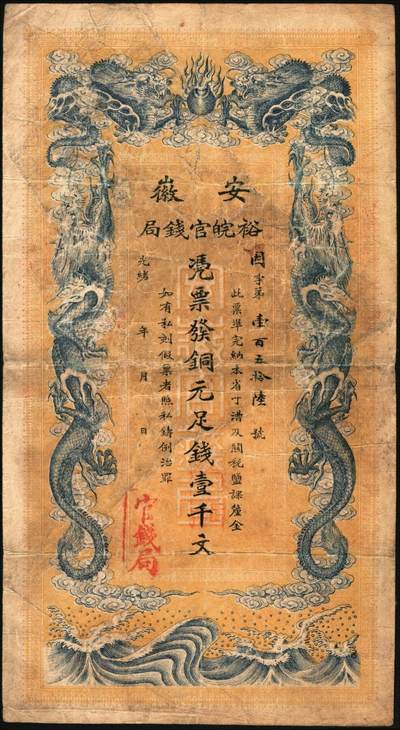 安徽
裕皖官錢局
因字第壹百五拾陸號
此票準完納本省丁漕及關稅鹽課釐金
憑票發銅元足錢壹千文
如有私刻假票者照私鑄例治罪
光緒 年 月 日
官錢局